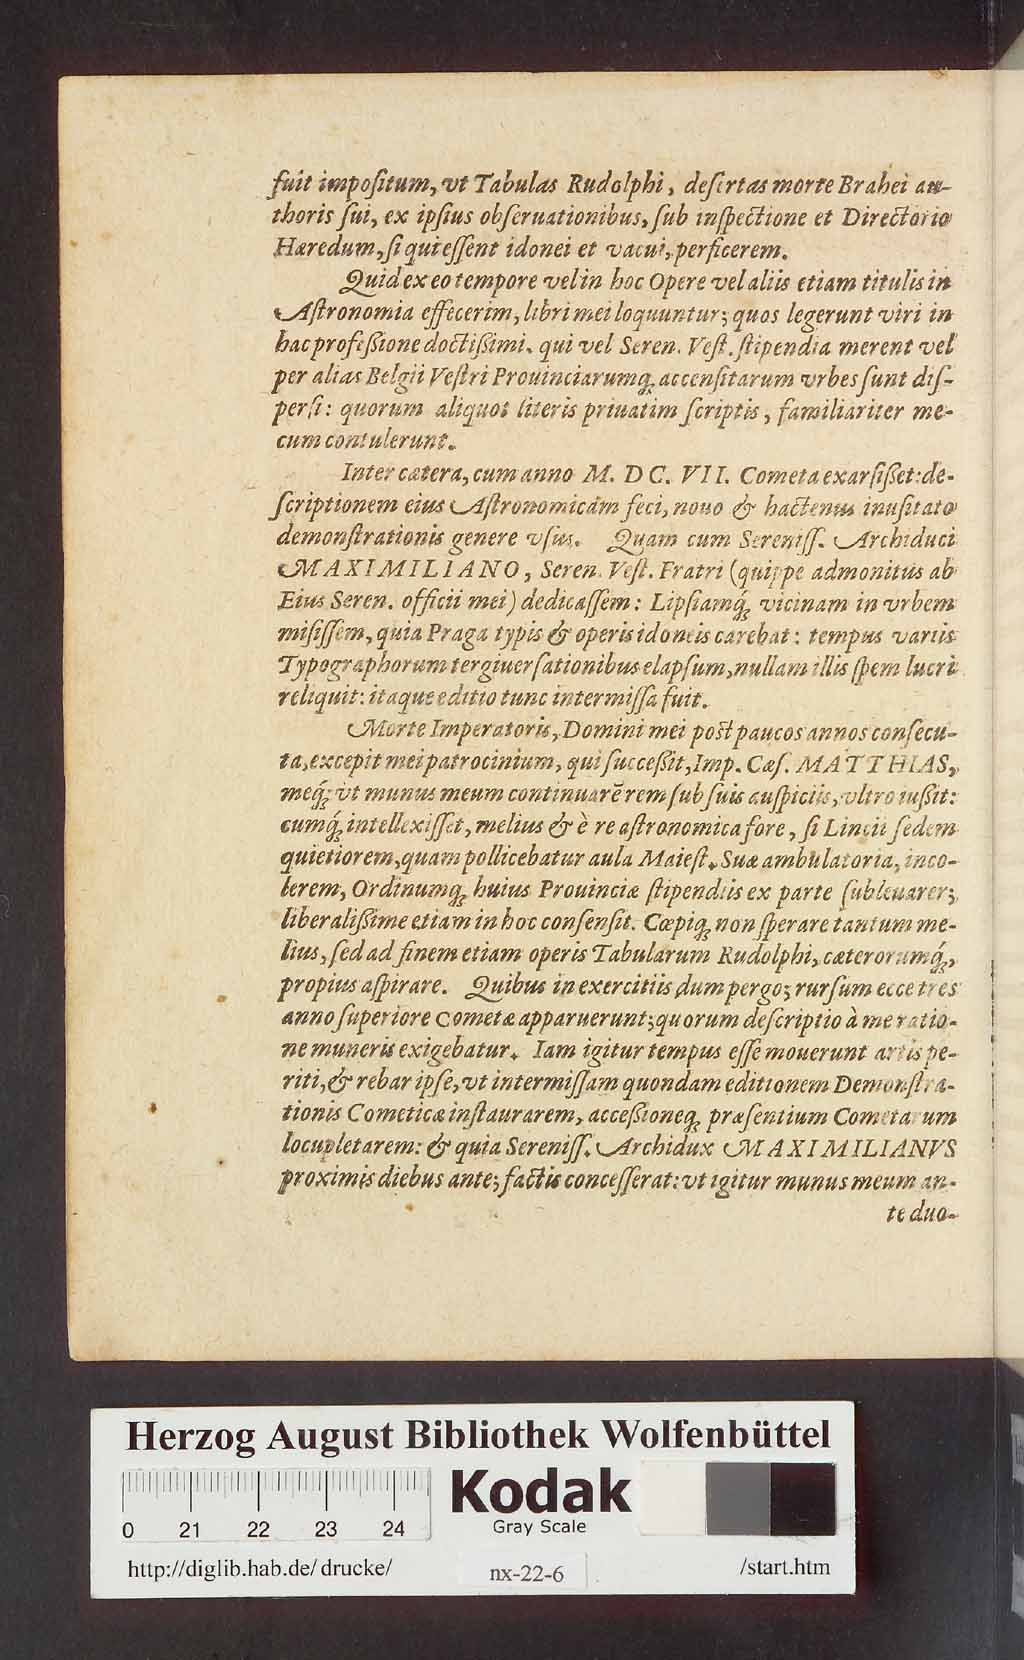 fuit impoſitum, vt Tabulas Rudolphi, deſertas morte Brahei au-
thoris ſui, ex ipſius obſeruationibus, ſub inſpectione et Directorio
Hæredum, ſi qui eſſent idonei et vacui, perficerem.
Quid ex eo tempore vel in hoc Opere vel aliis etiam titulis in
Aſtronomia effecerim, libri mei loquuntur; quos legerunt viri in
hac profeſſione doctiſſimi, qui vel Seren. Veſt. ſtipendia merent vel
per alias Belgii Veſtri Prouinciarumq; accenſitarum vrbes ſunt diſ-
perſi: quorum aliquot literis priuatim ſcriptis, familiariter me-
cum contulerunt.
Inter cætera, cum anno M. DC. VII. Cometa exarſiſſet: de-
ſcriptionem eius Aſtronomicam feci, nouo & hactenus inuſitato
demonſtrationis genere vſus. Quam cum Sereniſſ. Archiduci
MAXIMILIANO, Seren. Veſt. Fratri (quippe admonitus ab
Eius Seren. officii mei) dedicaſſem: Lipſiamq́; vicinam in vrbem
miſiſſem, quia Praga typis & operis idoneis carebat: tempus variis
Typographorum tergiuerſationibus elapſum, nullam illis ſpem lucri
reliquit: itaque editio tunc intermiſſa fuit.
Morte Imperatoris, Domini mei poſt paucos annos conſecu-
ta, excepit mei patrocinium, qui ſucceſſit, Imp. Cæſ. MATTHIAS,
meq́; vt munus meum continuarē rem ſub ſuis auſpiciis, vltro iuſſit:
cumq́; intellexiſſet, melius & è re aſtronomica fore, ſi Lincii ſedem
quietiorem, quam pollicebatur aula Maieſt. Suæ ambulatoria, inco-
lerem, Ordinumq; huius Prouinciæ ſtipendiis ex parte ſubleuarer;
liberaliſſime etiam in hoc conſenſit. Cœpiq; non ſperare tantum me-
lius, ſed ad finem etiam operis Tabularum Rudolphi, cæterorumq́;,
propius aſpirare. Quibus in exercitiis dum pergo; rurſum ecce tres
anno ſuperiore Cometæ apparuerunt; quorum deſcriptio à me ratio-
ne muneris exigebatur. Iam igitur tempus eſſe mouerunt artis pe-
riti, & rebar ipſe, vt intermiſſam quondam editionem Demonſtra-
tionis Cometicæ inſtaurarem, acceſſioneq; præſentium Cometarum
locupletarem: & quia Sereniſſ. Archidux MAXIMILIANVS
proximis diebus ante; factis conceſſerat: vt igitur munus meum an-
te duo-
Herzog August Bibliothek Wolfenbüttel
0 21 22 23 24
Kodak
Gray Scale
http://diglib.hab.de/drucke/ nx-22-6 /start.htm